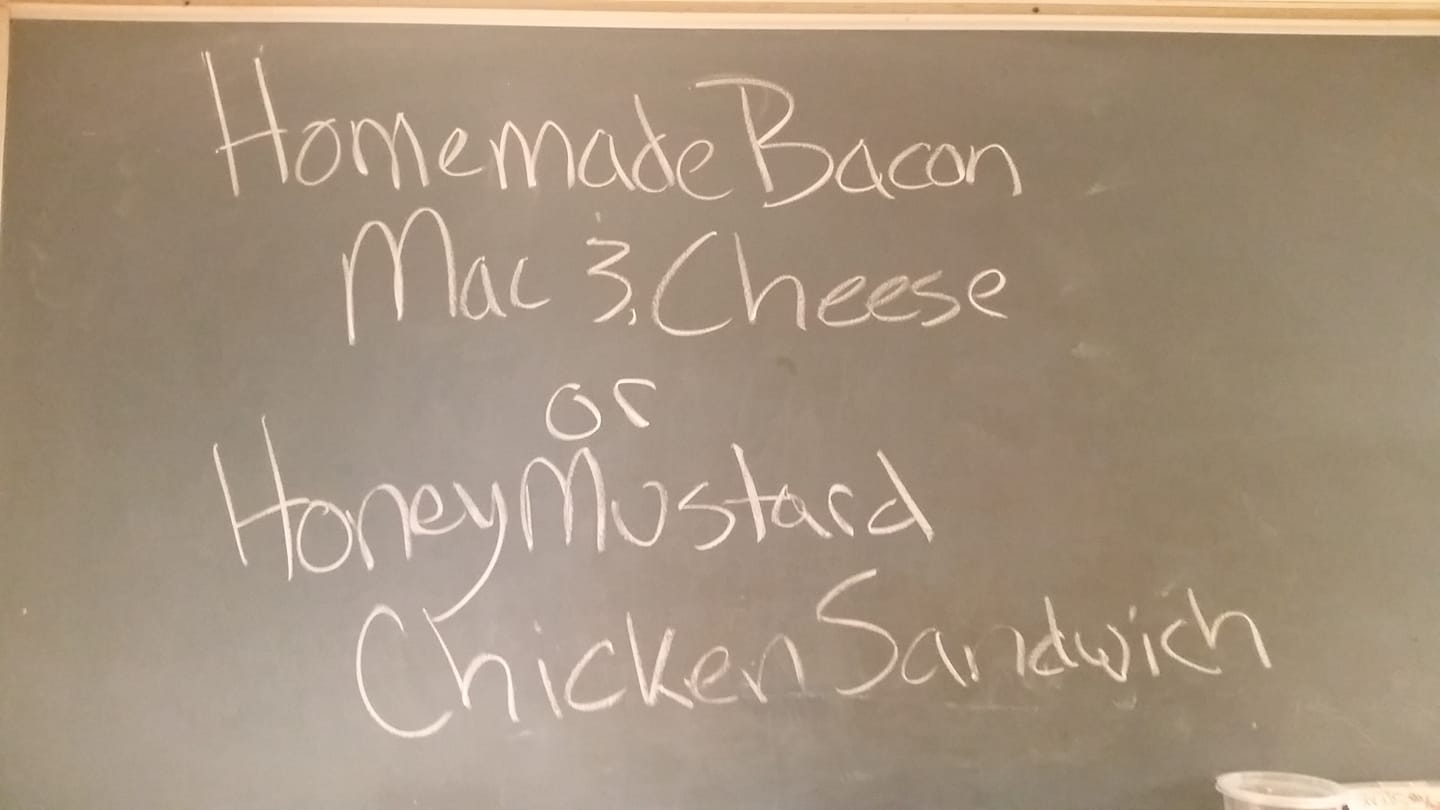 Homemade Bacon
Mac & Cheese
or
Honey Mustard
Chicken Sandwich